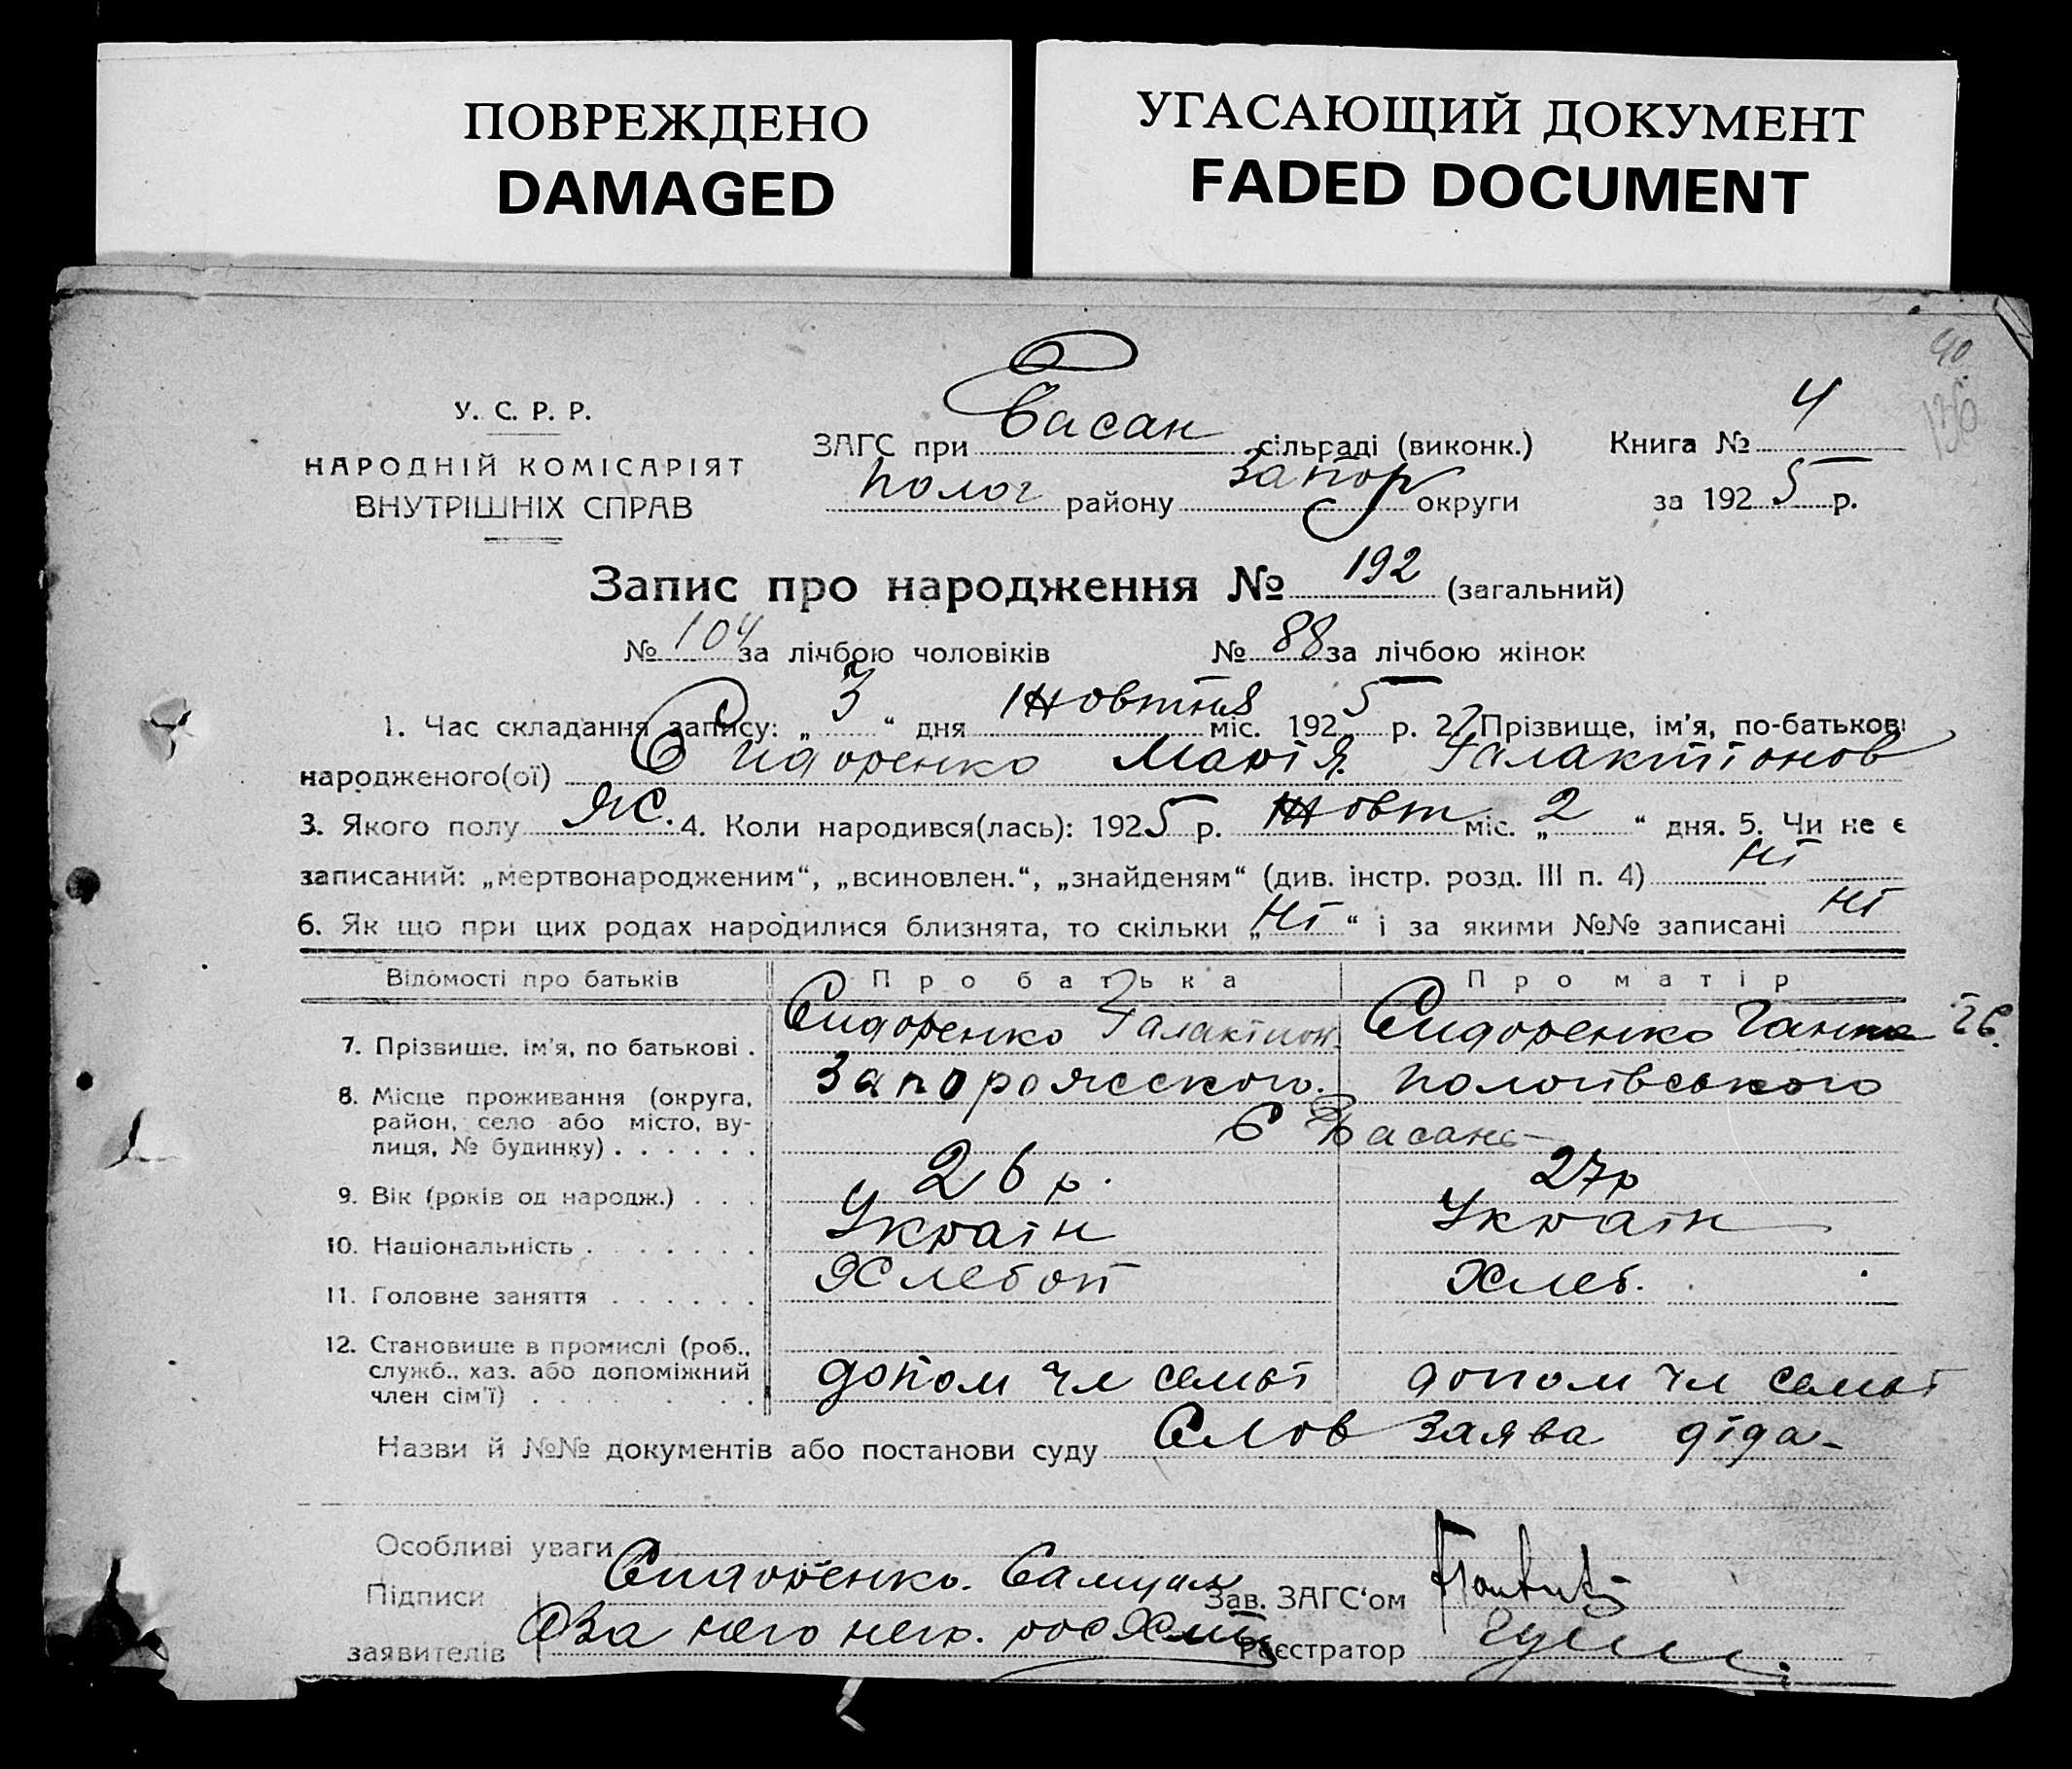 ПОВРЕЖДЕНО
DAMAGED
УГАСАЮЩИЙ ДОКУМЕНТ
FADED DOCUMENT
40
136
У. С. Р. Р.
НАРОДНІЙ КОМІСАРІЯТ
ВНУТРІШНІХ СПРАВ
ЗАГС при Басан сільраді (виконк.) Книга № 4
Полог району Запор округи за 1925 р.
Запис про народження № 192 (загальний)
№ 104 за лічбою чоловіків № 88 за лічбою жінок
1. Час складання запису: „3“ дня Жовтня міс. 1925 р. 2. Прізвище, ім'я, по-батькові
народженого(ої) Сидоренко Марія Галактіонов
3. Якого полу Ж. 4. Коли народився(лась): 1925 р. Жовт міс. „2“ дня. 5. Чи не є
записаний: „мертвонародженим“, „всиновлен.“, „знайденям“ (див. інстр. розд. III п. 4) Ні
6. Як що при цих родах народилися близнята, то скільки „Ні“ і за якими №№ записані Ні
Відомості про батьків Про батька Про матір
7. Прізвище, ім'я, по батькові . Сидоренко Галактион Сидоренко Ганна
8. Місце проживання (округа, Запорожского. Пологівського
район, село або місто, ву-
лиця, № будинку) . . . . . . С Басань
9. Вік (років од народж.) . . . 26 р. 27 р
10. Національність . . . . . . . Україн Україн
11. Головне заняття . . . . . . Хлебоп Хлеб.
12. Становище в промислі (роб.,
служб., хаз. або допоміжний допом чл семьі допом чл семьі
член сім'ї) . . . . . . . .
Назви й №№ документів або постанови суду Слов заява діда
Особливі уваги
Підписи Сидоренко. Зав. ЗАГС'ом
заявителів За него негр. рос Реєстратор